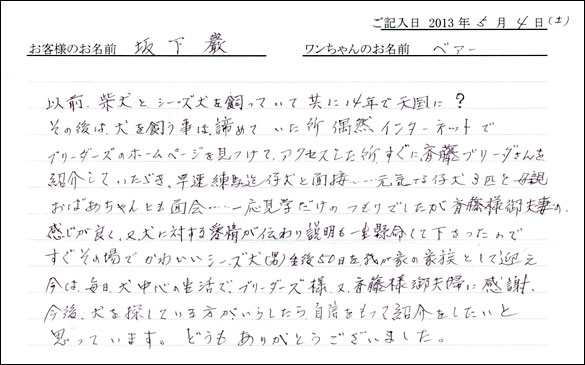 ご記入日 2013 年 5 月 4 日(土)
お客様のお名前 坂下 巖 ワンちゃんのお名前 ベアー
以前、柴犬とシーズ犬を飼っていて共に14年で天国に?
その後は、犬を飼う事は諦めていた所偶然インターネットで
ブリーダーズのホームページを見つけて、アクセスした所すぐに斉藤ブリーダさんを
紹介していただき、早速練馬迄仔犬と面接……元気な仔犬3匹と母親
おばあちゃんとも面会……一応見学だけのつもりでしたが斉藤様御夫妻の
感じが良く、又犬に対する愛情が伝わり説明も一生懸命して下さったので
すぐその場でかわいいシーズ犬(男)生後50日を我が家の家族として迎え
今は、毎日犬中心の生活で、ブリーダーズ様、又斉藤様御夫婦に感謝、
今後、犬を探している方がいらしたら自信をもって紹介をしたいと
思っています。どうもありがとうございました。